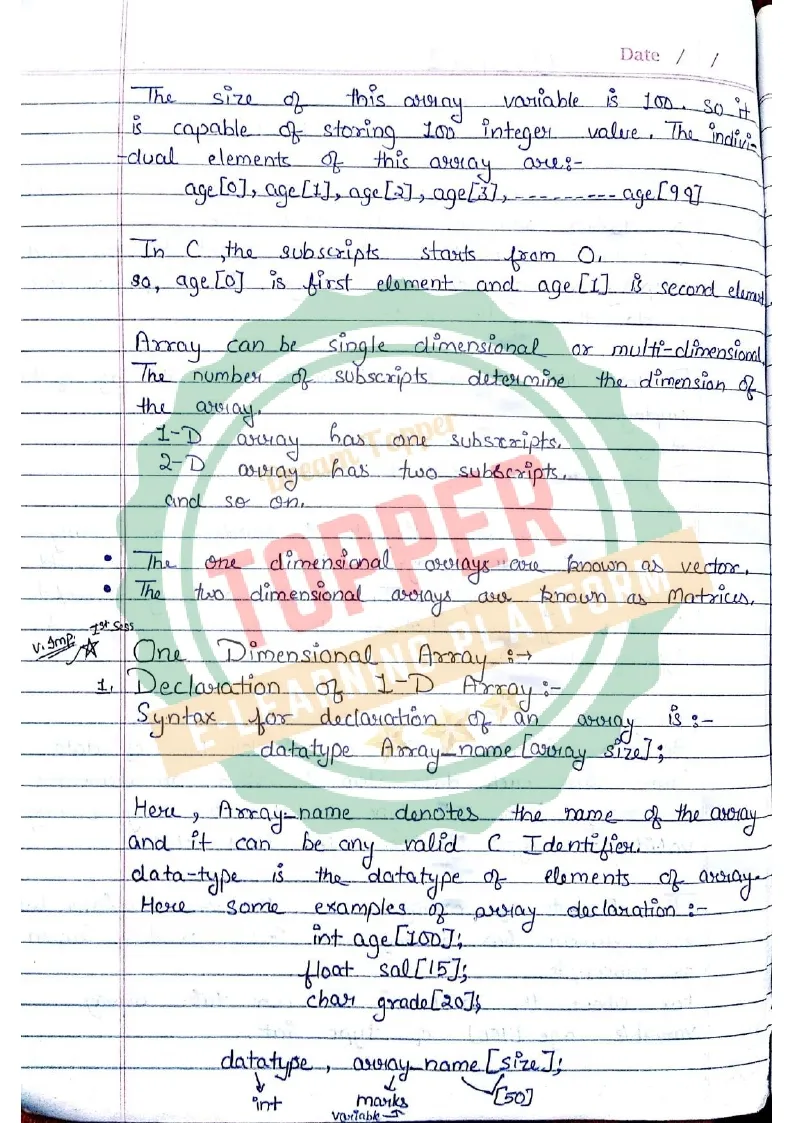 Date / /
The size of this array variable is 100. So it
is capable of storing 100 integer value. The indivi-
-dual elements of this array are:-
age[0], age[1], age[2], age[3], ---------- age[99]
In C, the subscripts starts from 0.
so, age[0] is first element and age[1] is second element
Array can be single dimensional or multi-dimensional.
The number of subscripts determine the dimension of
the array.
1-D array has one subscripts.
2-D array has two subscripts.
and so on.
Dream Topper
TOPPER
E-LEARNING PLATFORM
• The one dimensional arrays are known as vector.
• The two dimensional arrays are known as Matrices.
1st Sess
V. Imp.
One Dimensional Array :→
1. Declaration of 1-D Array :-
Syntax for declaration of an array is :-
datatype Array_name [array size];
Here, Array_name denotes the name of the array
and it can be any valid C Identifier.
data-type is the datatype of elements of array.
Here some examples of array declaration :-
int age[100];
float sal[15];
char grade[20];
datatype , array_name [size];
int marks [50]
variable →